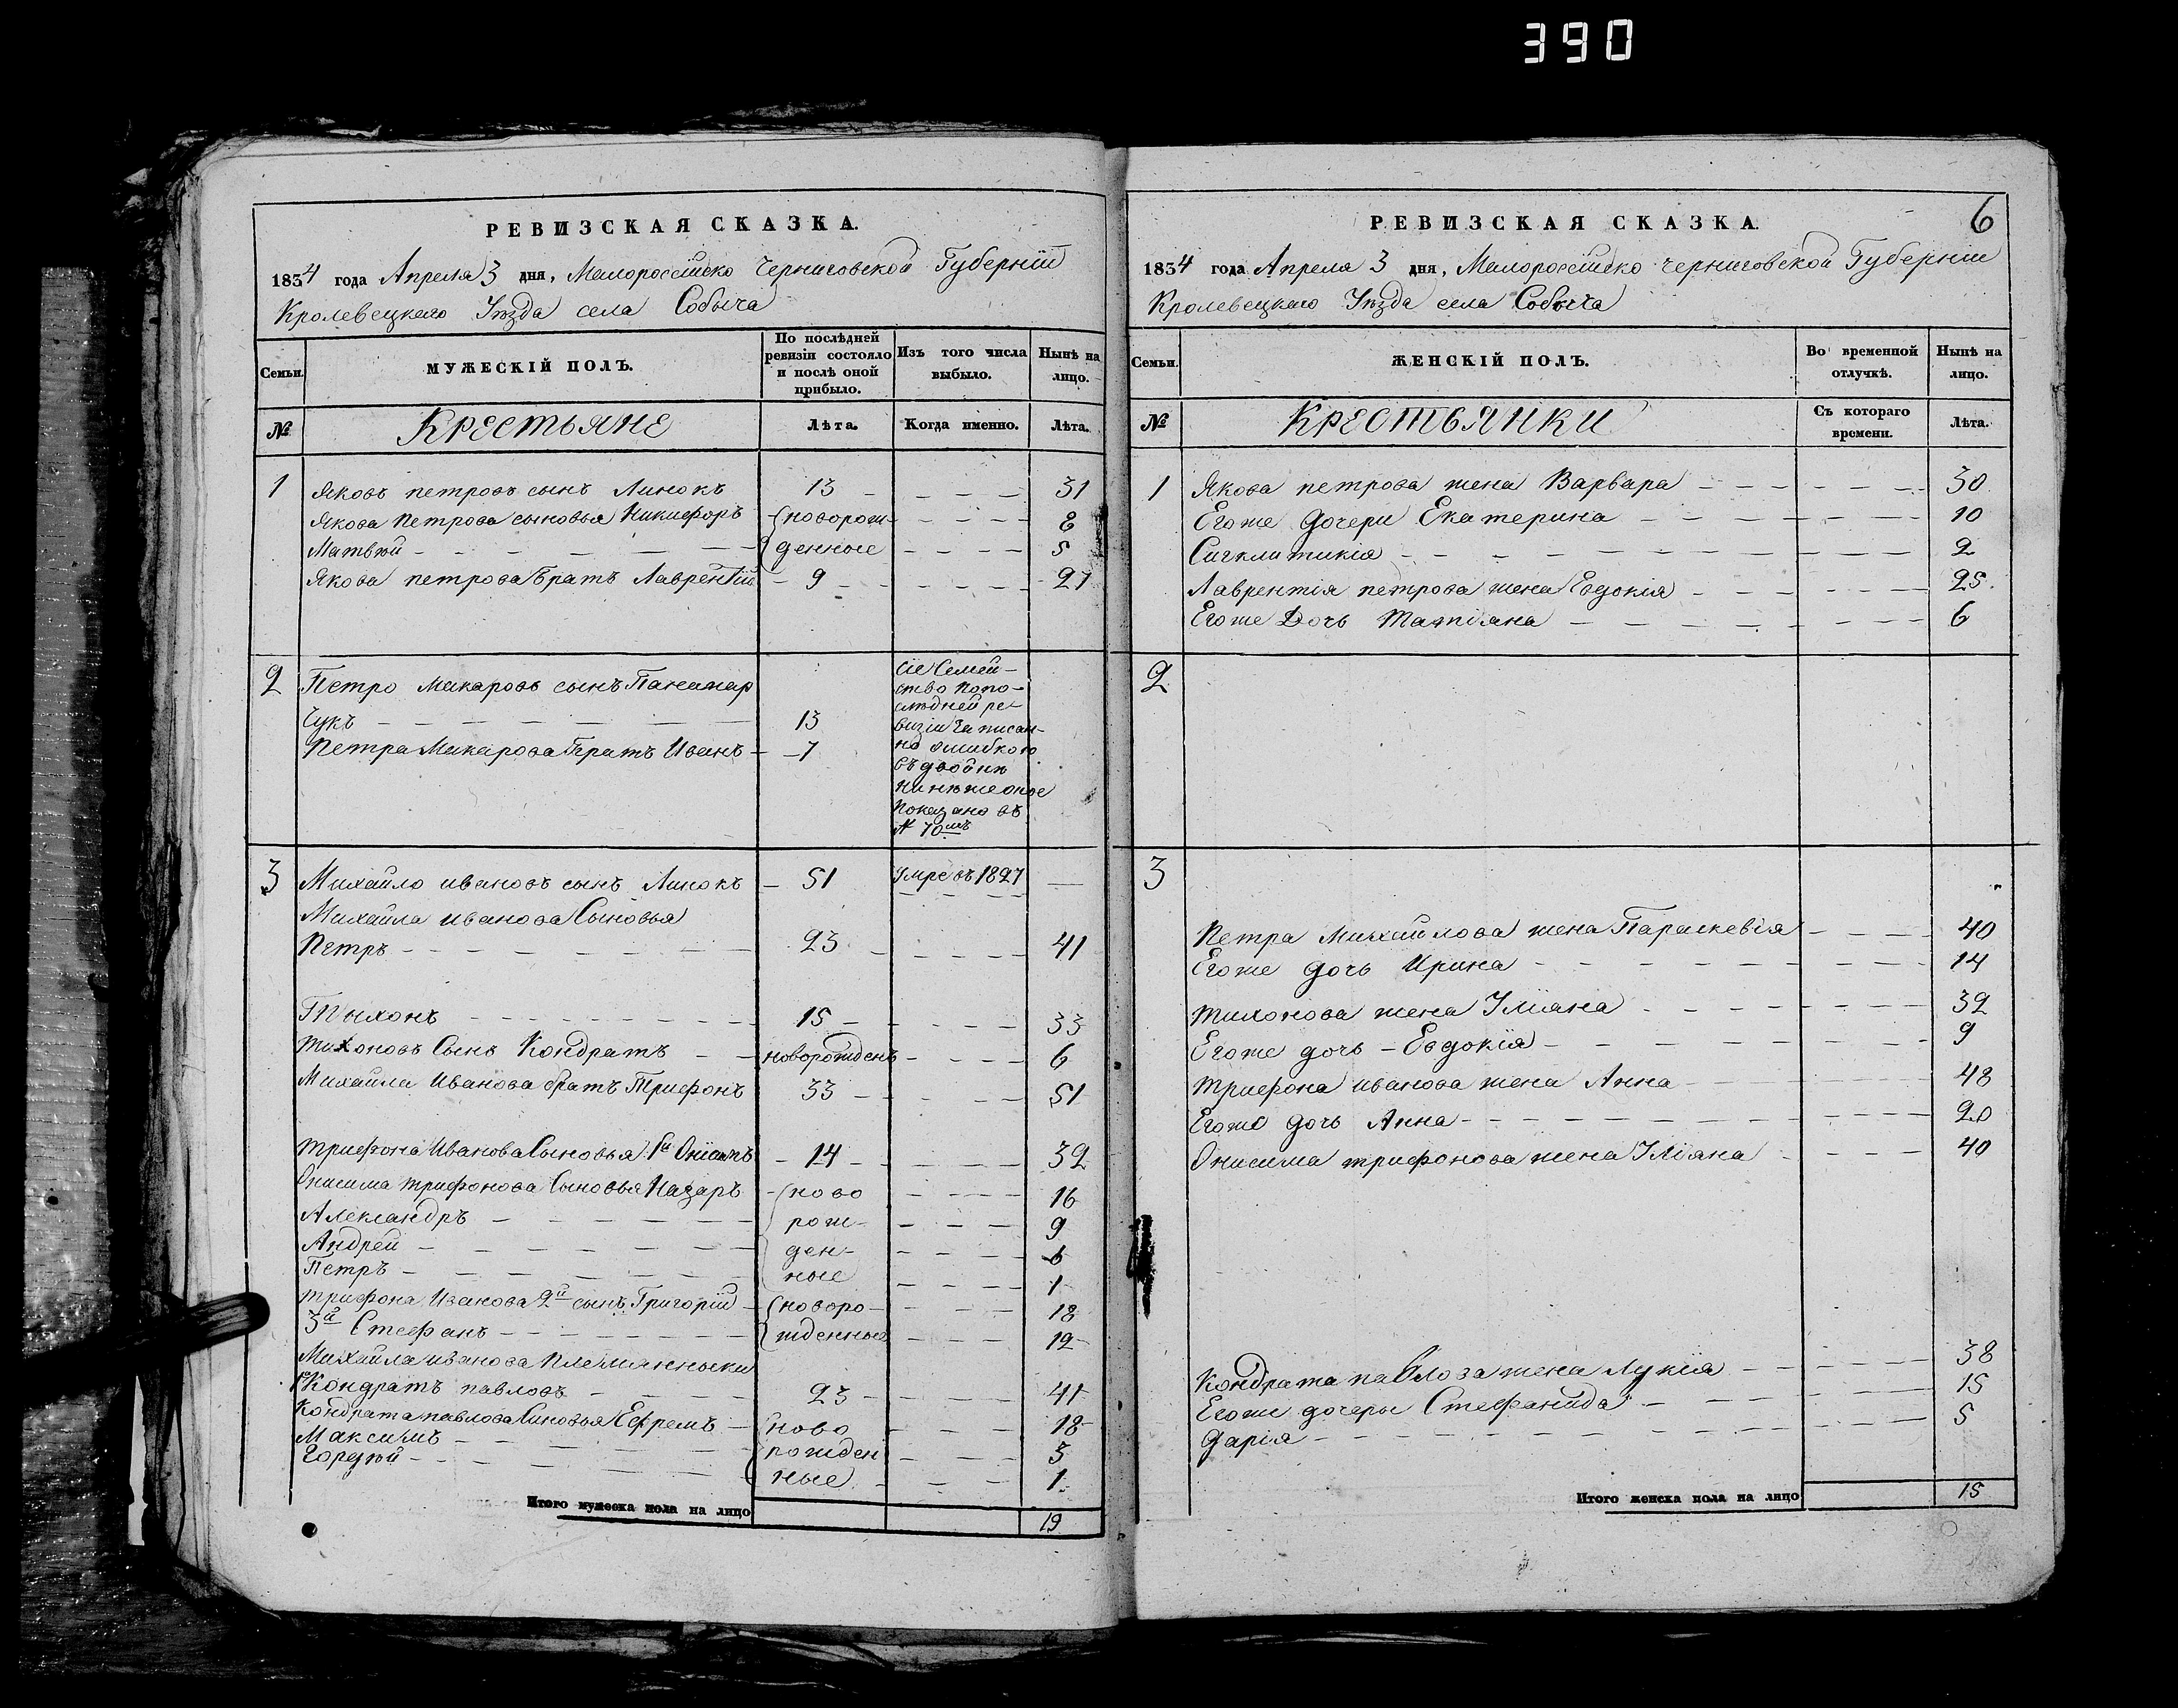 390
РЕВИЗСКАЯ СКАЗКА.
1834 года Апреля 3 дня, Малороссійско Черниговской Губерніи
Кролевецкаго Уѣзда села Собыча
Семьи.
МУЖЕСКІЙ ПОЛЪ.
По послѣдней ревизіи состояло и послѣ оной прибыло.
Изъ того числа выбыло.
Нынѣ на лицо.
№
Крестьяне
Лѣта.
Когда именно.
Лѣта.
1 Яковъ петровъ сынъ Линокъ 13 31
Якова Петрова сыновья Никифоръ новорож- 8
Матвѣй денные 5
Якова петрова Братъ Лаврентій 9 27
2 Петро Макаровъ сынъ Панамар
чукъ 13
Петра Макарова Братъ Иванъ 7
Сіе Семей-
ство попо-
слѣдней ре-
визіи записан-
но ошибкою
въ двойнѣ
нинѣже оное
показано въ
№ 70мъ
3 Михайло ивановъ сынъ Линокъ 51 Умре въ 1827
Михайла иванова Сыновья
Петръ 23 41
Тихонъ 15 33
Тихоновъ Сынъ Кондратъ новорожденъ 6
Михайла Иванова братъ Трифонъ 33 51
Трифона Иванова Сыновья 1й Онисимъ 14 32
Онисима трифонова Сыновья Назаръ ново 16
Александръ рож- 9
Андрей ден- 6
Петръ ные 1
Трифона Иванова 2й сынъ Григорій новоро- 18
3й Стефанъ жденные 12
Михайла иванова племянныки
1й Кондратъ павловъ 23 41
Кондрата павлова Синовья Ефремъ ново 18
Максимъ рожден 3
Гордѣй ные 1
Итого мужеска пола на лицо 19
РЕВИЗСКАЯ СКАЗКА. 6
1834 года Апреля 3 дня, Малороссійско Черниговской Губерніи
Кролевецкаго Уѣзда села Собыча
Семьи.
ЖЕНСКІЙ ПОЛЪ.
Во временной отлучкѣ.
Нынѣ на лицо.
№
Крестьянки
Съ котораго времени.
Лѣта.
1 Якова петрова жена Варвара 30
Егоже дочери Екатерина 10
Сигклитикія 2
Лаврентія петрова жена Евдокія 25
Егоже Дочь Татіяна 6
2
3
Петра Михайлова жена Параскевія 40
Егоже дочь Ирина 14
Тихонова жена Уліана 32
Егоже дочь Евдокія 9
Трифона иванова жена Анна 48
Егоже дочь Анна 20
Онисима трифонова жена Уліяна 40
Кондрата павлова жена Лукія 38
Егоже дочеры Стефанида 15
Дарія 5
Итого женска пола на лицо 15